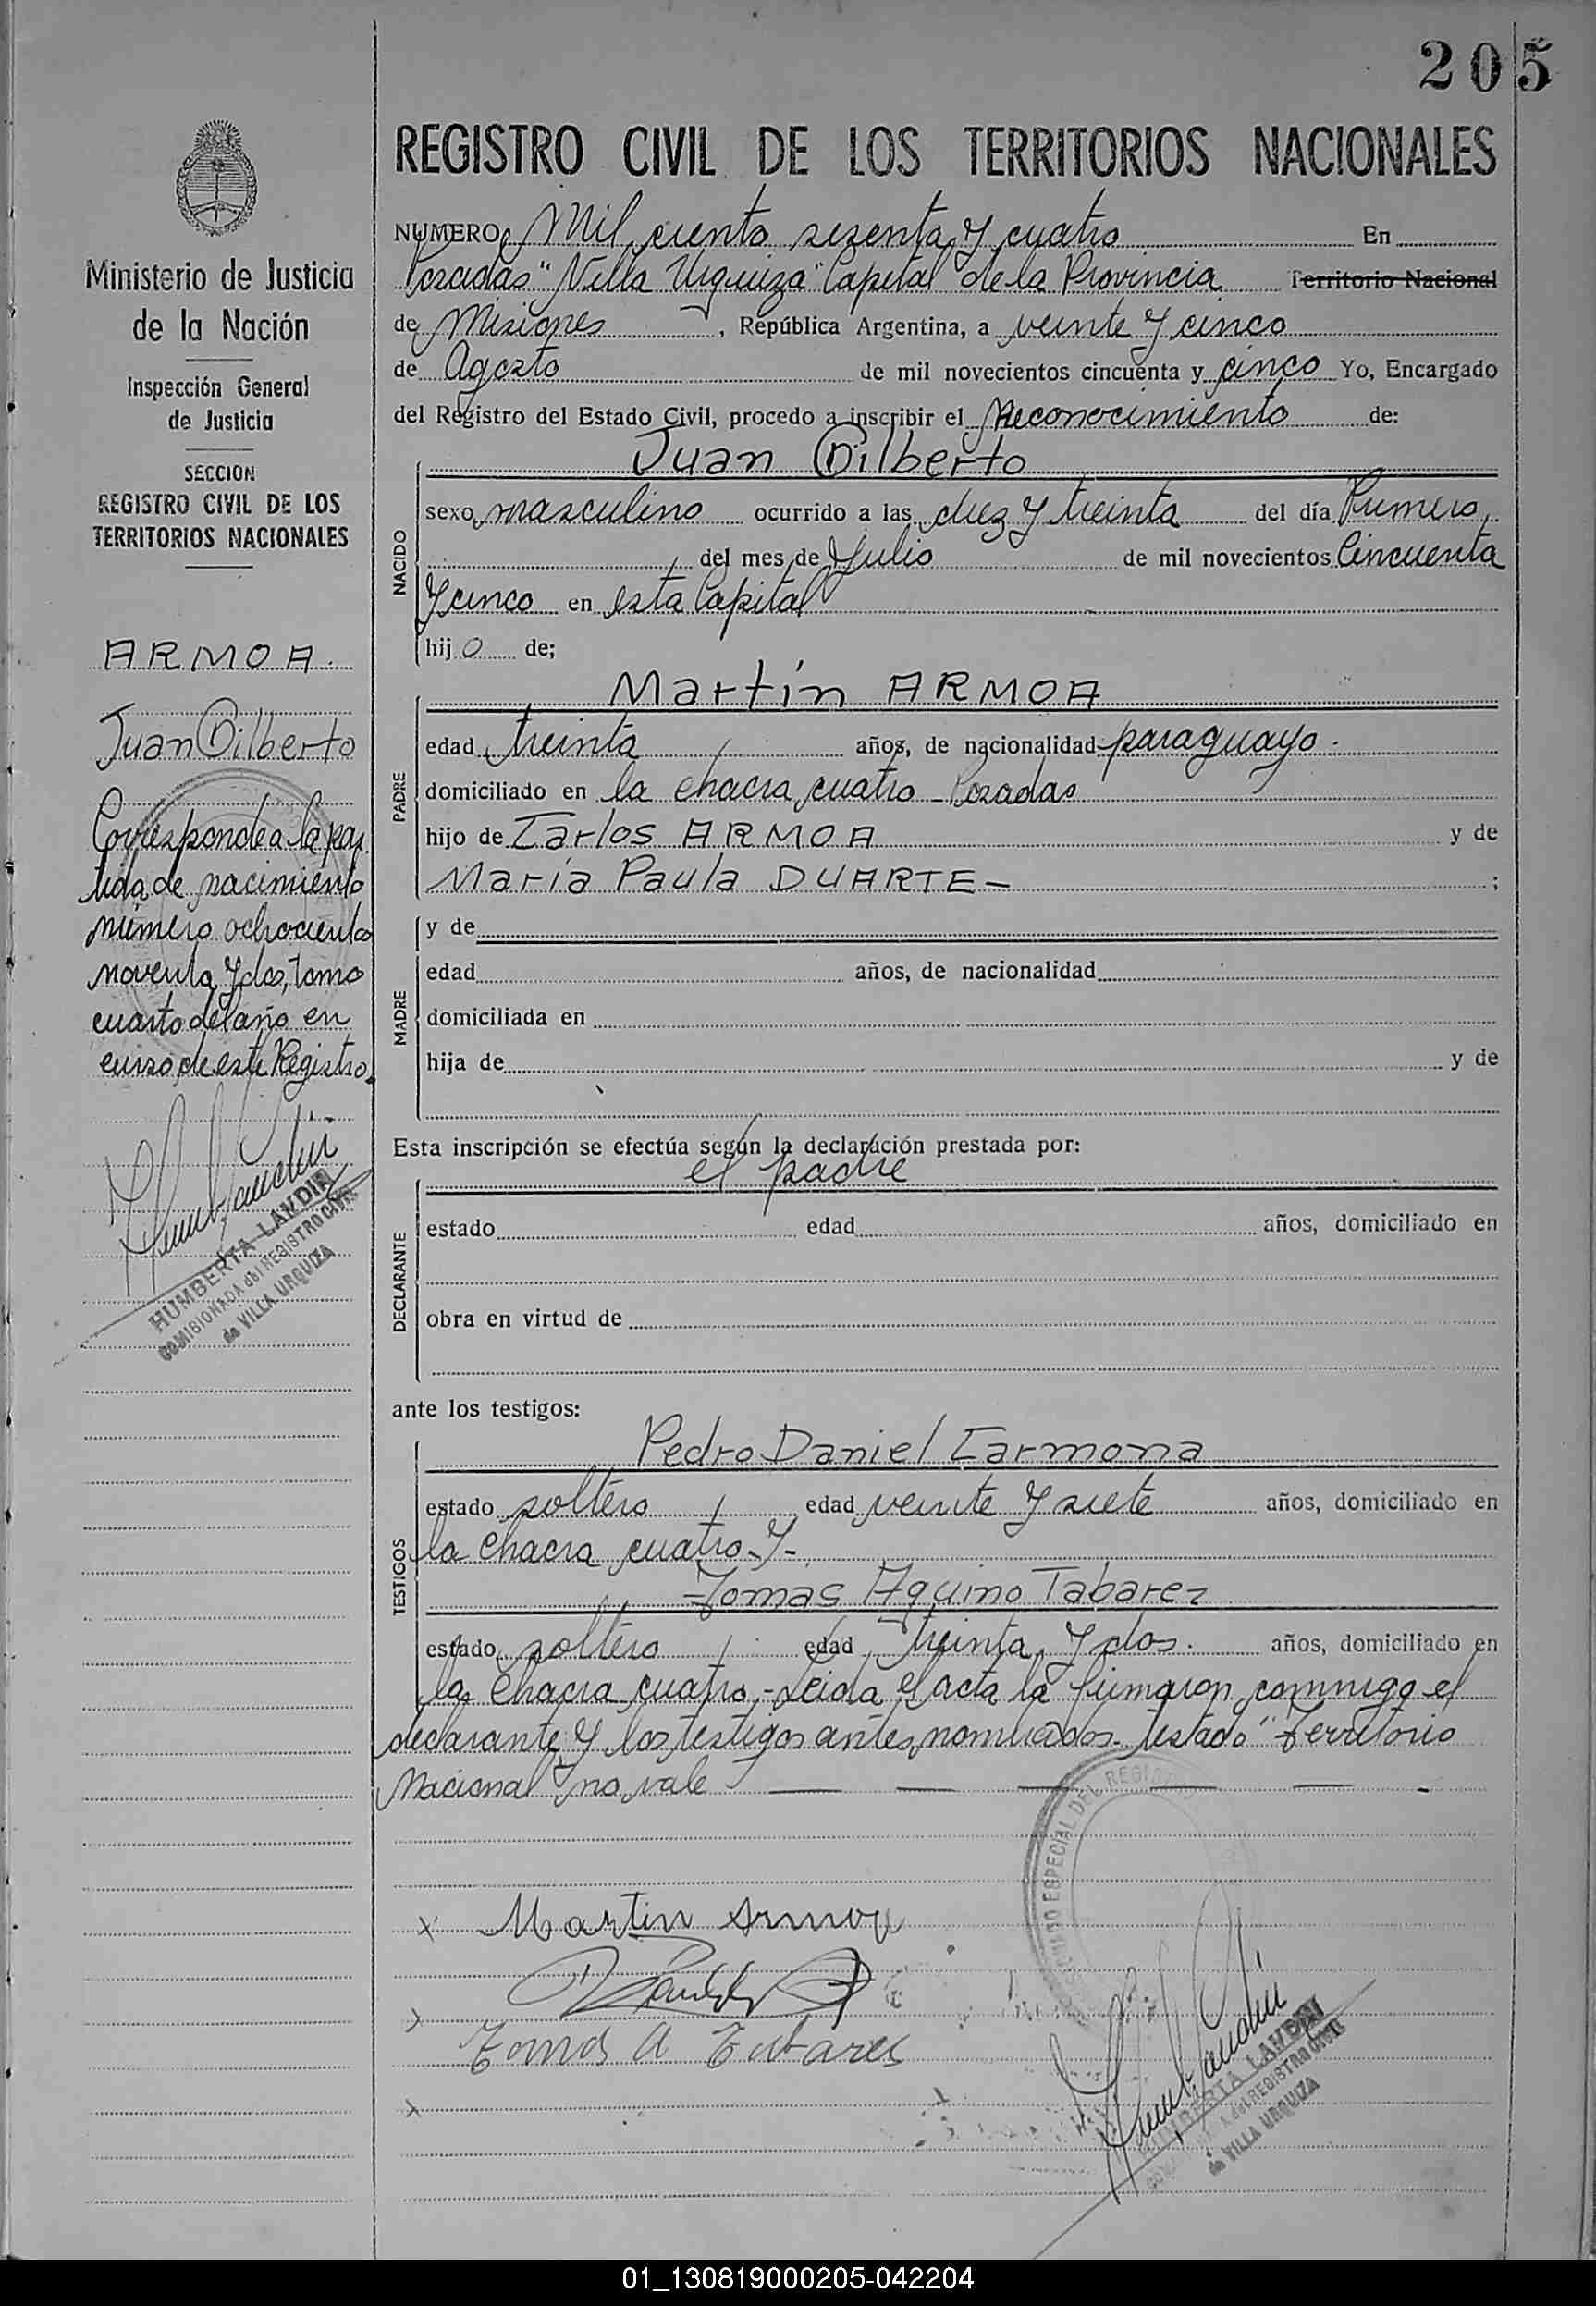 205
REGISTRO CIVIL DE LOS TERRITORIOS NACIONALES
Ministerio de Justicia
de la Nación
Inspección General
de Justicia
SECCION
REGISTRO CIVIL DE LOS
TERRITORIOS NACIONALES
ARMOA.
Juan Gilberto
Corresponde a la par
tida de nacimiento
número ochociento
noventa y dos, tomo
cuarto del año en
curso de este Registro.
HUMBERTA LANDIN
COMISIONADA del REGISTRO CIVIL
de VILLA URQUIZA
NUMERO Mil ciento sesenta y cuatro En
Posadas "Villa Urquiza" Capital de la Provincia Territorio Nacional
de Misiones, República Argentina, a veinte y cinco
de Agosto de mil novecientos cincuenta y cinco Yo, Encargado
del Registro del Estado Civil, procedo a inscribir el Reconocimiento de:
NACIDO
Juan Gilberto
sexo masculino ocurrido a las diez y treinta del día Primero
del mes de Julio de mil novecientos Cincuenta
y cinco en esta Capital
hijo de;
PADRE
Martín ARMOA
edad treinta años, de nacionalidad paraguayo.
domiciliado en la chacra cuatro - Posadas
hijo de Carlos ARMOA y de
María Paula DUARTE - ;
MADRE
y de
edad años, de nacionalidad
domiciliada en
hija de y de
Esta inscripción se efectúa según la declaración prestada por:
DECLARANTE
el padre
estado edad años, domiciliado en
obra en virtud de
ante los testigos:
TESTIGOS
Pedro Daniel Carmona
estado soltero edad veinte y siete años, domiciliado en
la chacra cuatro - y -
Tomas Aquino Tabarez
estado soltero edad treinta y dos. años, domiciliado en
la chacra cuatro, - Leida el acta la firmaron conmigo el
declarante y los testigos antes nombrados. testado "Territorio
Nacional" no vale
x Martin Armoa
x
Tomas A Tabares
x
ESPECIAL DEL REGIS
HUMBERTA LANDIN
del REGISTRO CIVIL
de VILLA URQUIZA
01_130819000205-042204